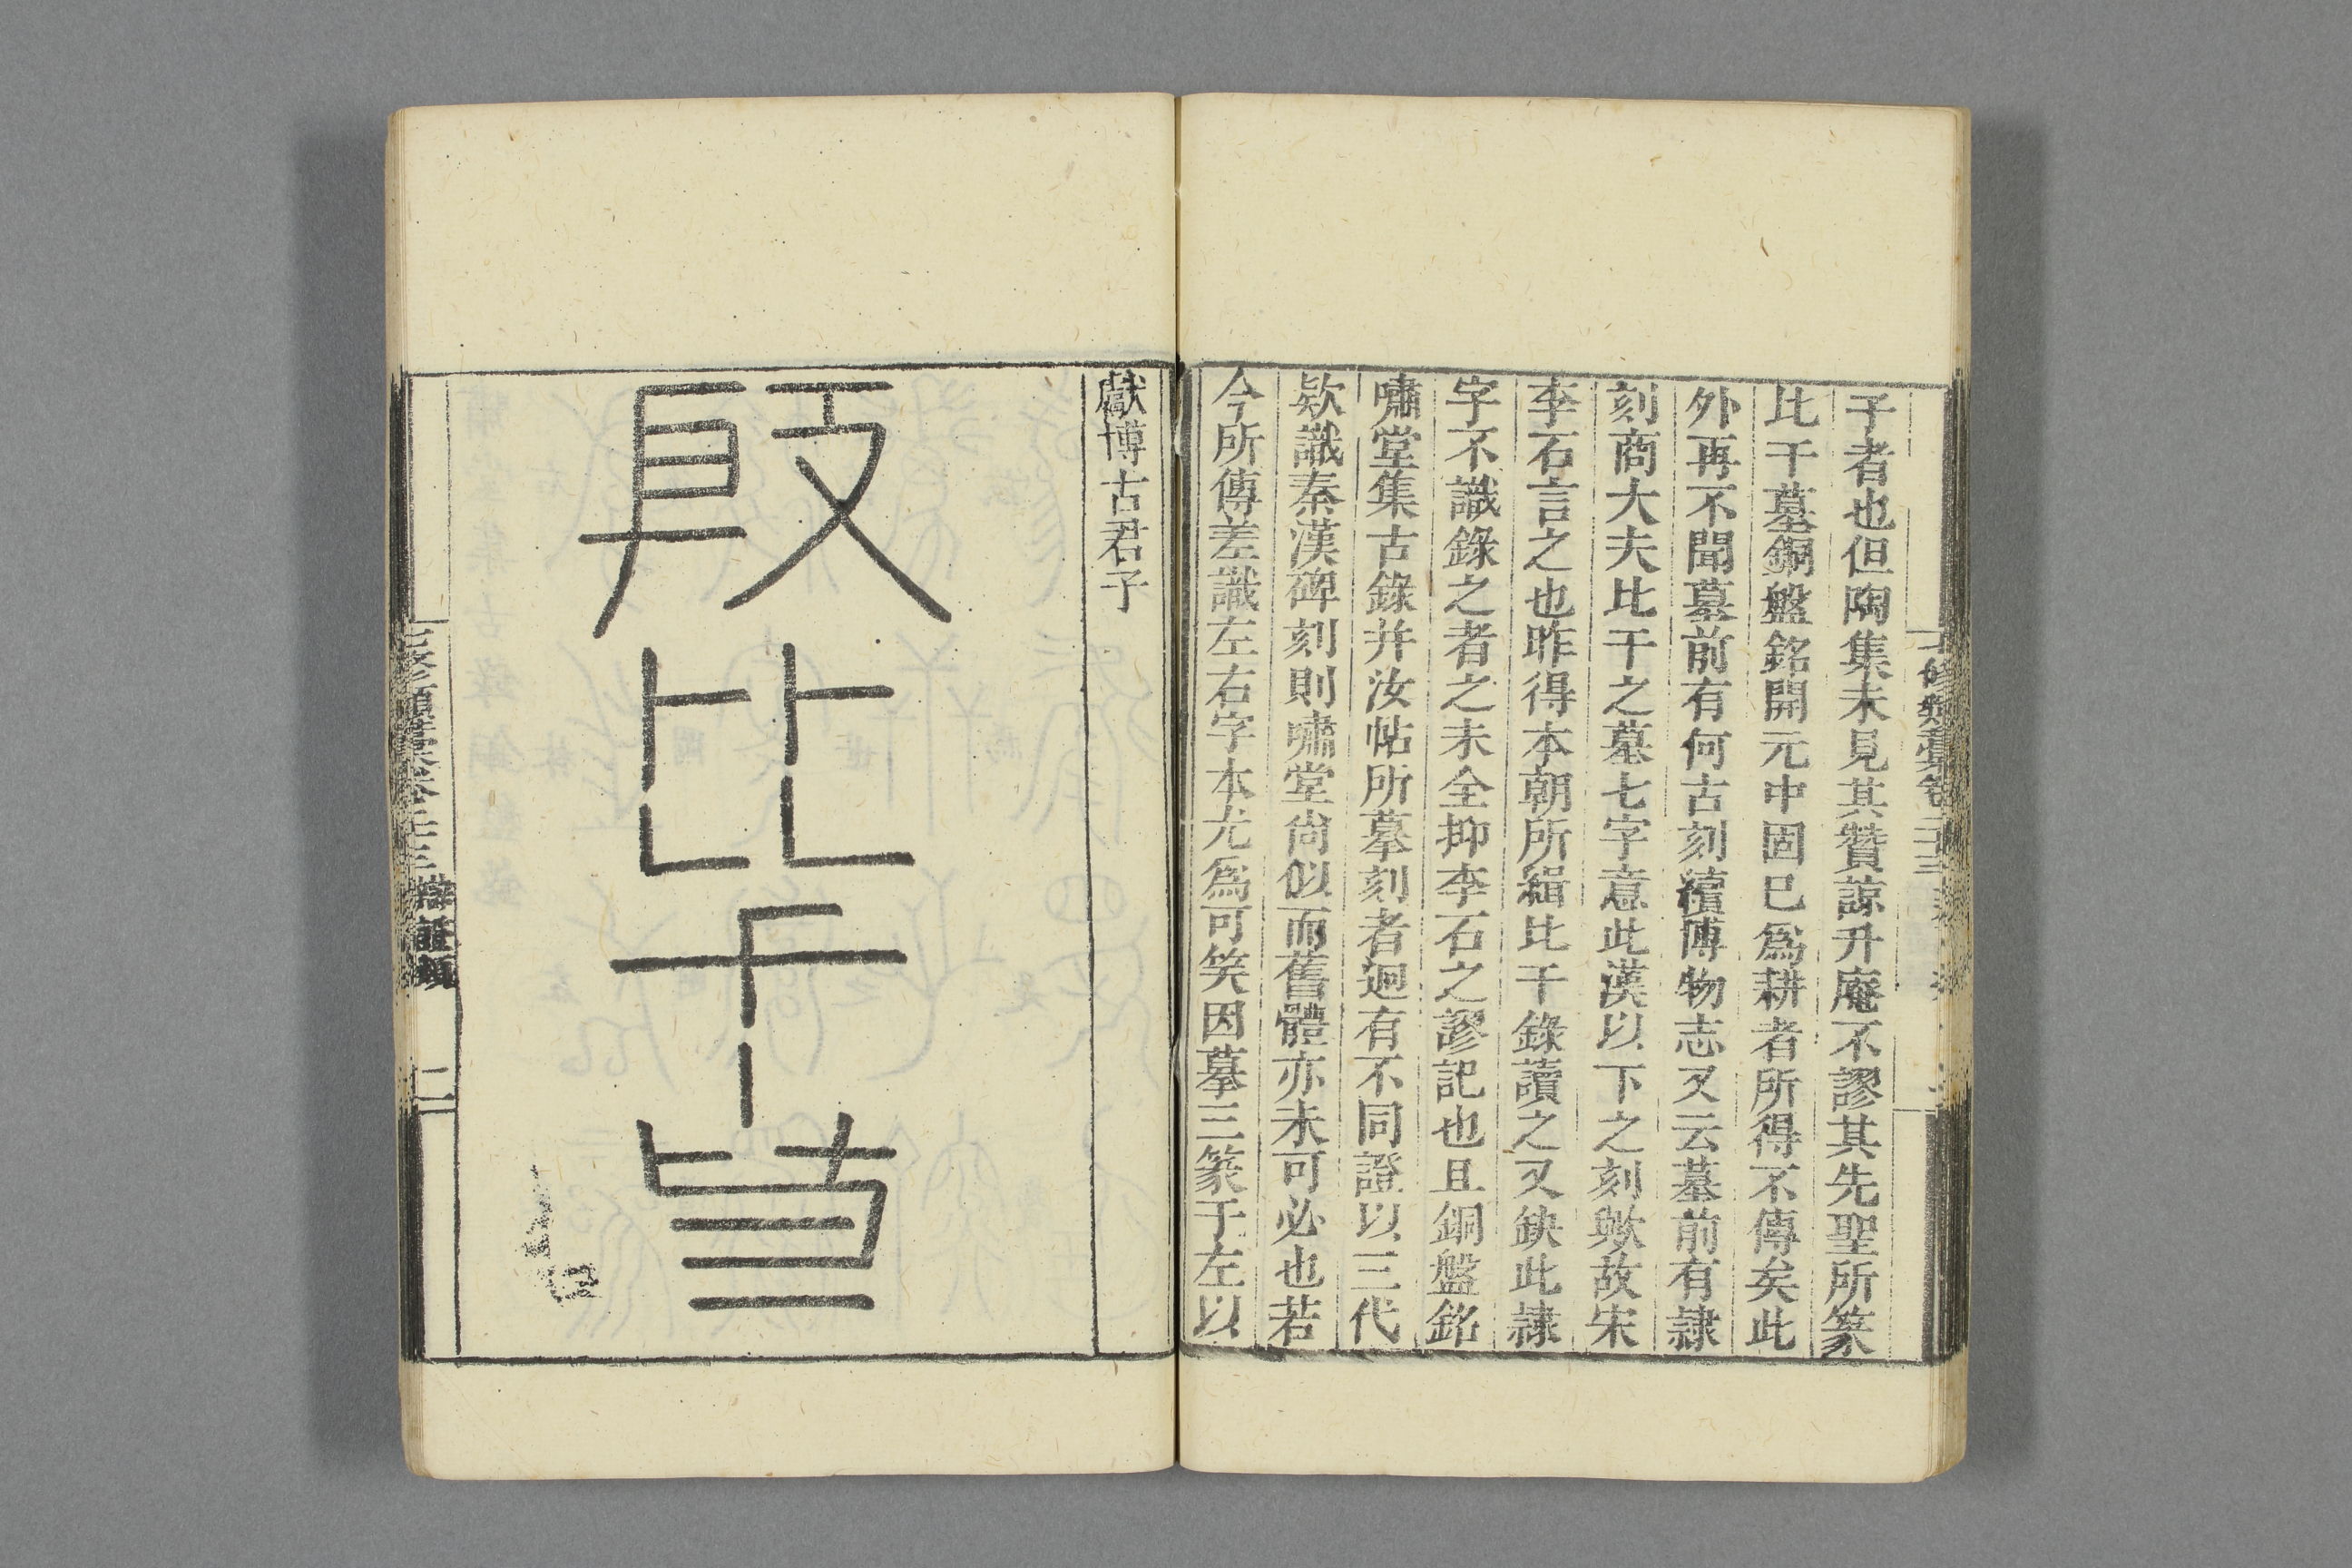 七修類稾卷二十三
子者也但陶集未見其贊諒升庵不謬其先聖所篆
比干墓銅盤銘開元中固已爲耕者所得不傳矣此
外再不聞墓前有何古刻續博物志又云墓前有隷
刻商大夫比干之墓七字意此漢以下之刻歟故宋
李石言之也昨得本朝所緝比干錄讀之又缺此隷
字不識錄之者之未全抑李石之謬記也且銅盤銘
嘯堂集古錄并汝帖所摹刻者廻有不同證以三代
欵識秦漢碑刻則嘯堂尚似而舊體亦未可必也若
今所傳差識左右字本尤爲可笑因摹三篆于左以
獻博古君子
殷比干
七修類稾卷二十三 辯證類 二